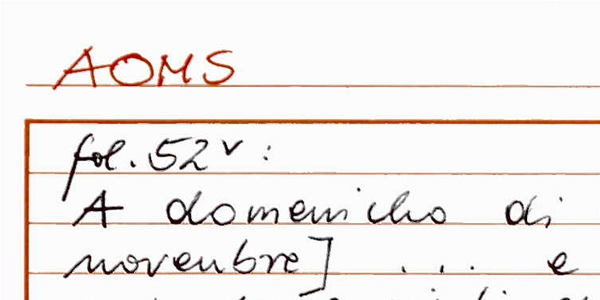 AOMS
fol. 52v :
A domenicho di
novenbre] ... e